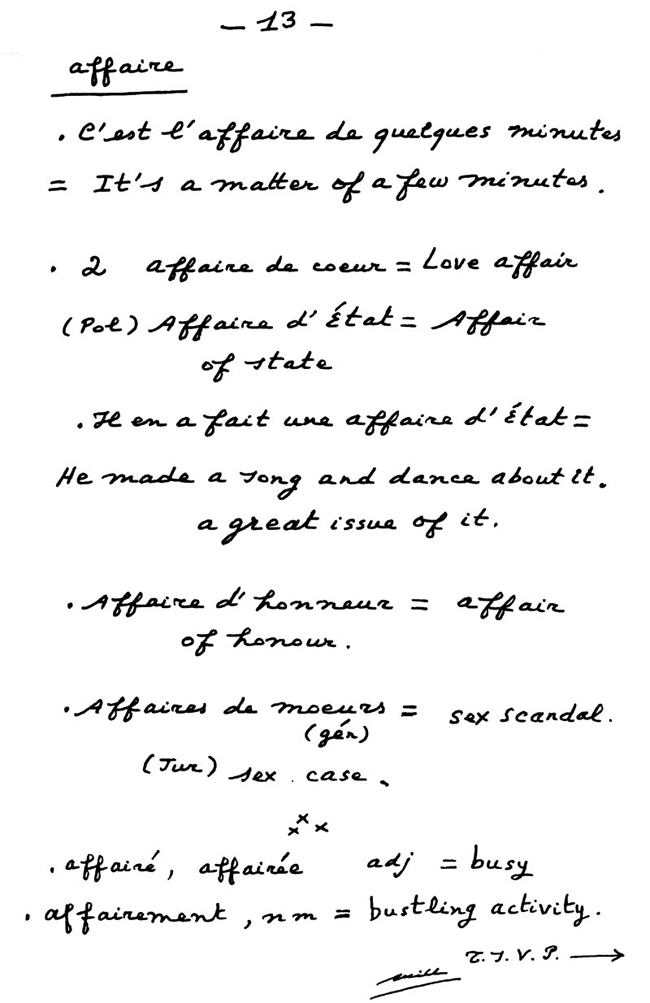 — 13 —
affaire
. C'est l'affaire de quelques minutes
= It's a matter of a few minutes.
. 2 affaire de coeur = Love affair
(Pol) Affaire d'État = Affair
of state
. Il en a fait une affaire d'État =
He made a song and dance about it.
a great issue of it.
. Affaire d'honneur = affair
of honour.
. Affaires de moeurs = sex scandal.
(gén)
(Jur) sex case.
xxx
. affairé, affairée adj = busy
. affairement, nm = bustling activity.
T.S.V.P. →